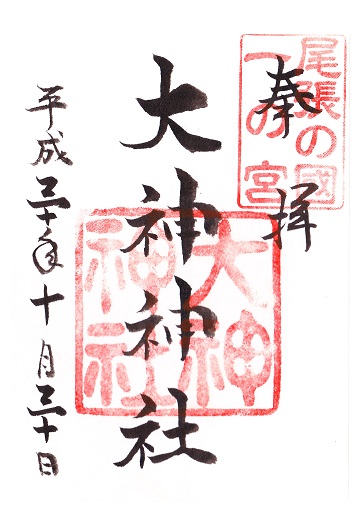 尾張の國
一の宮
奉拝
大神神社
大神
神社
平成三十年十月三十日